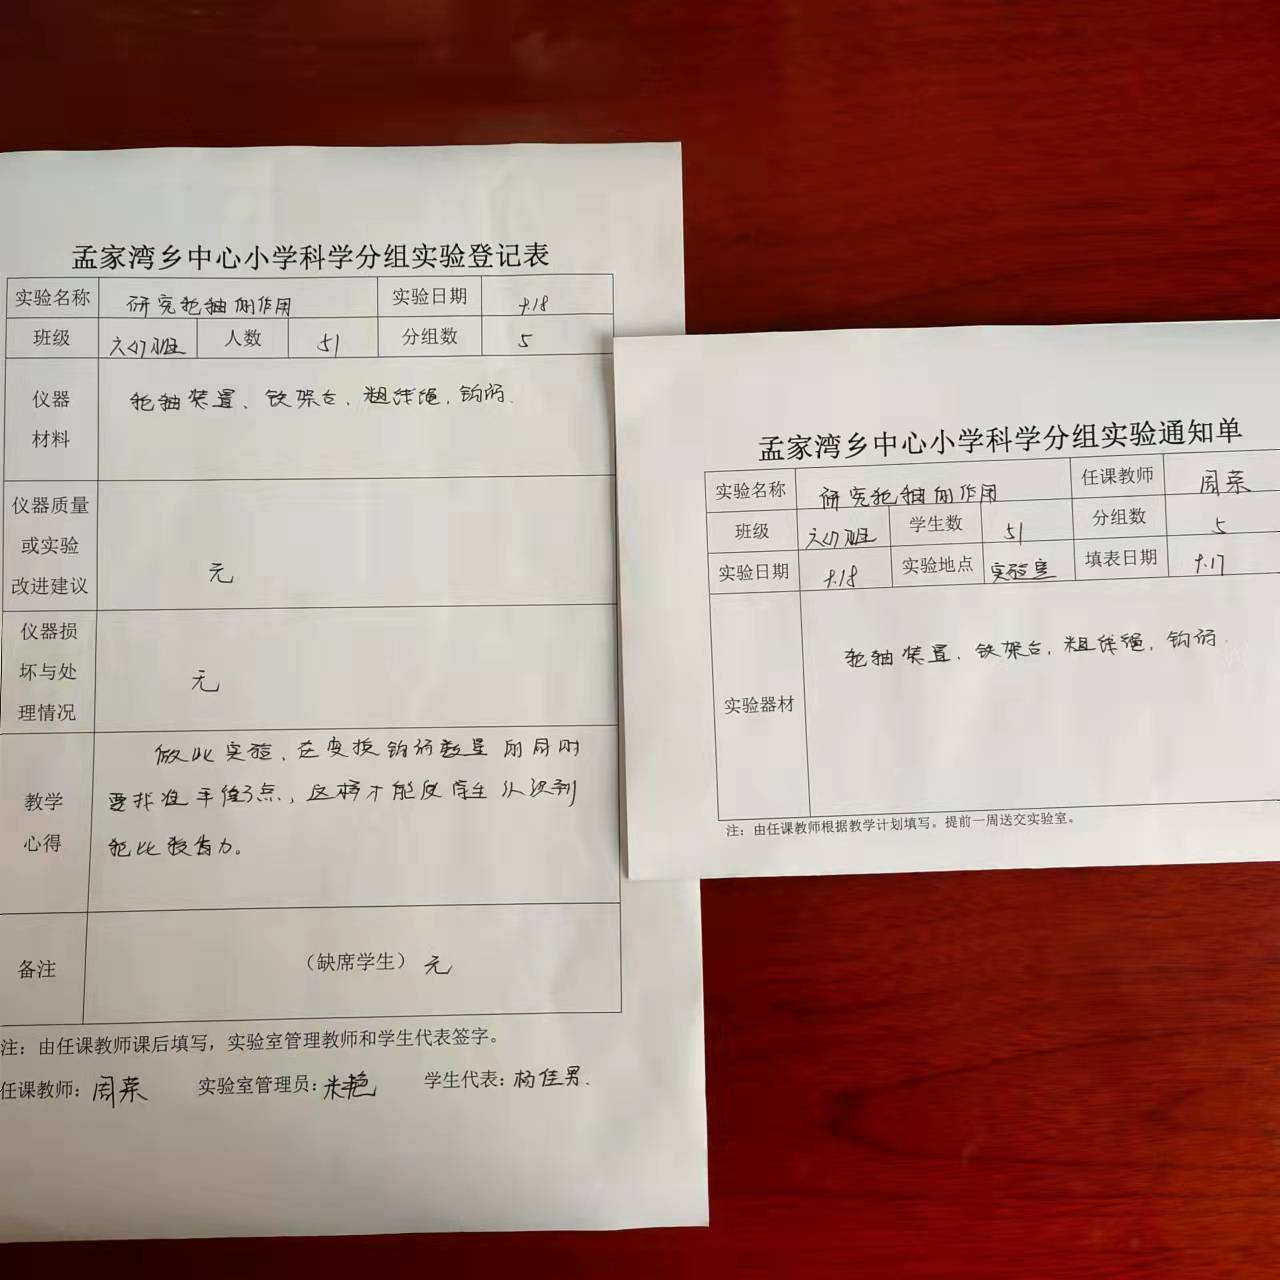 孟家湾乡中心小学科学分组实验登记表
实验名称 研究轮轴的作用 实验日期 9.18
班级 六(7)班 人数 51 分组数 5
仪器
材料
轮轴装置、铁架台、粗线绳、钩码.
仪器质量
或实验
改进建议
无
仪器损
坏与处
理情况
无
教学
心得
做此实验、在变换钩码数量的同时
要找准平衡点、这样才能使学生认识到
轮比较省力。
备注 (缺席学生) 无
注：由任课教师课后填写，实验室管理教师和学生代表签字。
任课教师: 周荣 实验室管理员: 朱艳 学生代表: 杨佳男.
孟家湾乡中心小学科学分组实验通知单
实验名称 研究轮轴的作用 任课教师 周荣
班级 六(7)班 学生数 51 分组数 5
实验日期 9.18 实验地点 实验室 填表日期 9.17
实验器材 轮轴装置、铁架台、粗线绳、钩码.
注：由任课教师根据教学计划填写。提前一周送交实验室。